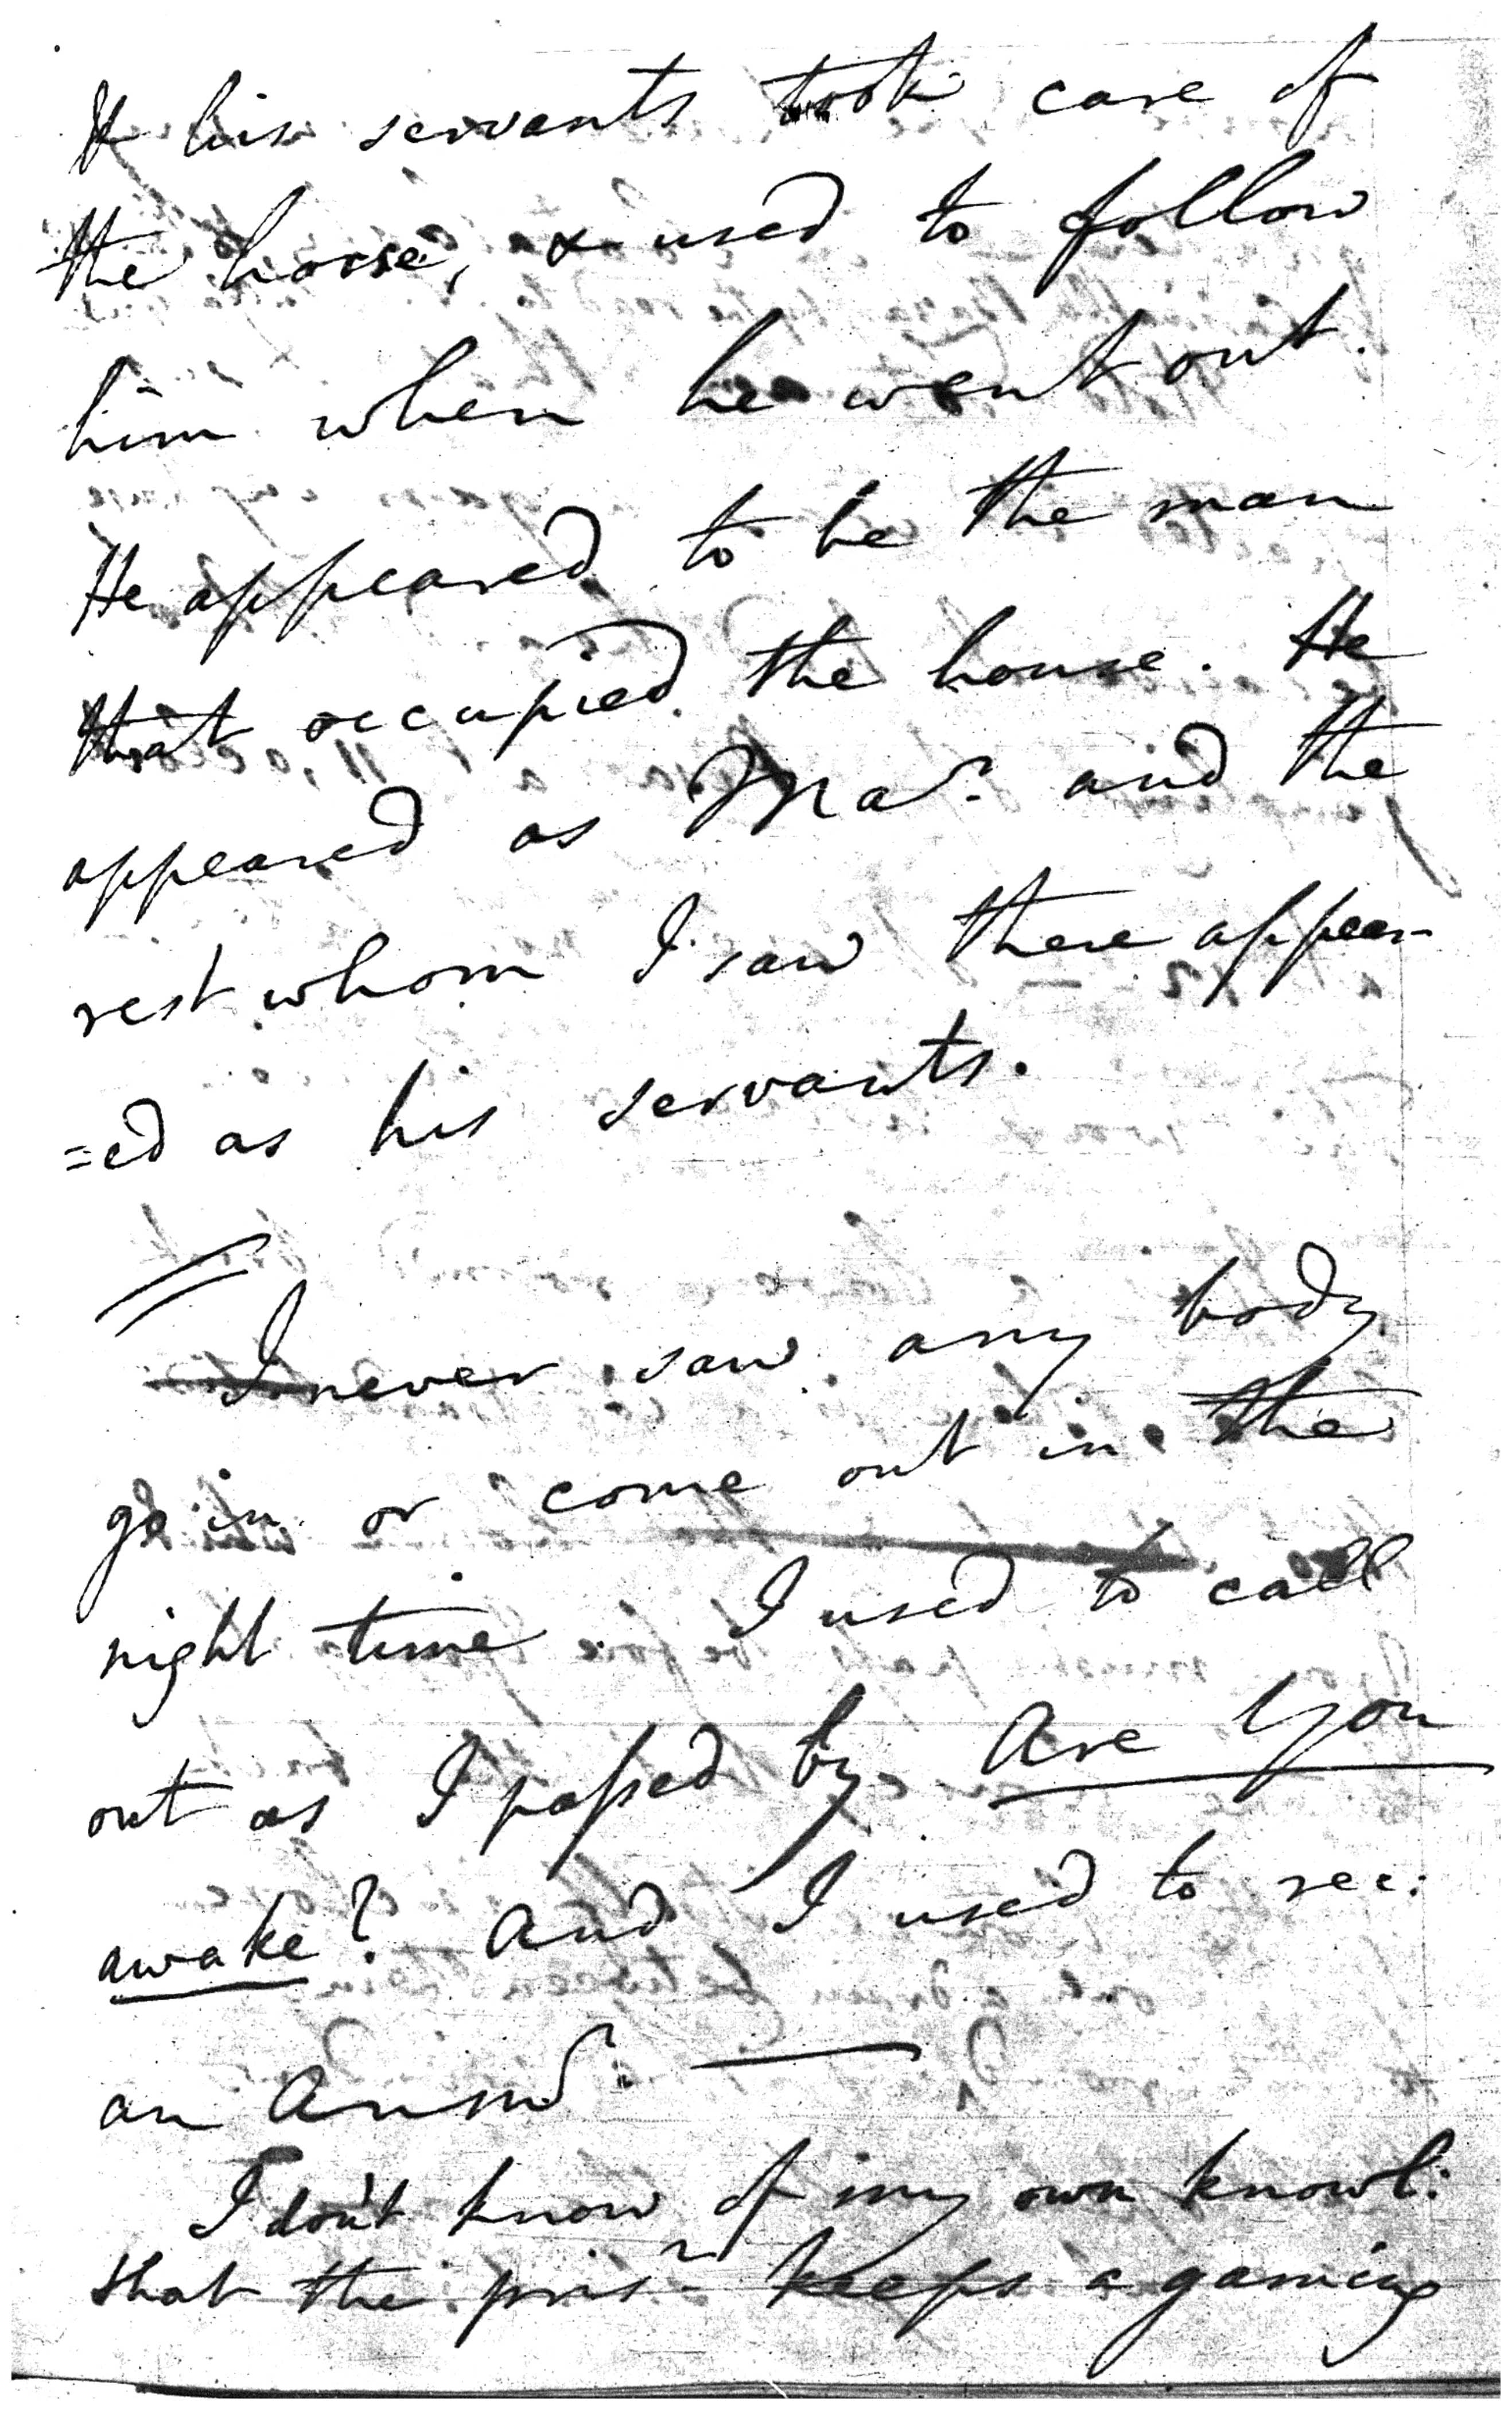 & his servants took care of
the horse, & used to follow
him when he went out.
He appeared to be the man
that occupied the house. He
appeared as Mar. and the
rest whom I saw there appear-
=ed as his servants.
I never saw any body
go in or come out in the
night time. I used to call
out as I passed by Are You
awake? And I used to rec:
an Answr. —
I don't know of my own knowl:
that the prisr. keeps a gaming